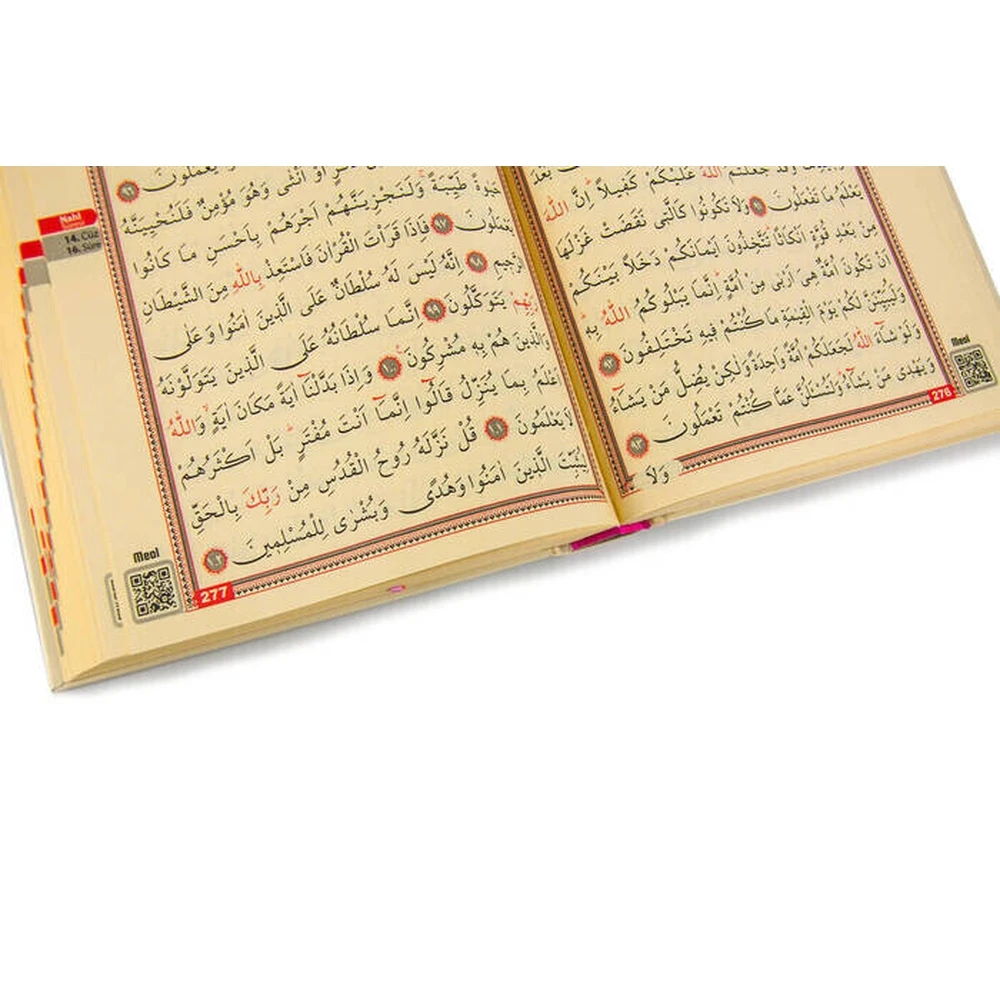 وَقَدْ جَعَلْتُمُ اللّٰهَ عَلَيْكُمْ كَفِيلًاۜ اِنَّ اللّٰهَ
يَعْلَمُ مَا تَفْعَلُونَ ٩١ وَلَا تَكُونُوا كَالَّتِي نَقَضَتْ غَزْلَهَا
مِنْ بَعْدِ قُوَّةٍ اَنْكَاثًاۜ تَتَّخِذُونَ اَيْمَانَكُمْ دَخَلًا بَيْنَكُمْ
اَنْ تَكُونَ اُمَّةٌ هِيَ اَرْبٰى مِنْ اُمَّةٍۜ اِنَّمَا يَبْلُوكُمُ اللّٰهُ بِهِۜ
وَلَيُبَيِّنَنَّ لَكُمْ يَوْمَ الْقِيٰمَةِ مَا كُنْتُمْ فِيهِ تَخْتَلِفُونَ ٩٢
وَلَوْ شَٓاءَ اللّٰهُ لَجَعَلَكُمْ اُمَّةً وَاحِدَةً وَلٰكِنْ يُضِلُّ مَنْ يَشَٓاءُ
وَيَهْدِي مَنْ يَشَٓاءُۜ وَلَتُسْـَٔلُنَّ عَمَّا كُنْتُمْ تَعْمَلُونَ ٩٣
وَلَا
276
Meal
يَعْمَلُونَ ٩٦
ذَكَرٍ اَوْ اُنْثٰى وَهُوَ مُؤْمِنٌ فَلَنُحْيِيَنَّهُ
حَيٰوةً طَيِّبَةًۚ وَلَنَجْزِيَنَّهُمْ اَجْرَهُمْ بِاَحْسَنِ مَا كَانُوا
يَعْمَلُونَ ٩٧ فَاِذَا قَرَأْتَ الْقُرْاٰنَ فَاسْتَعِذْ بِاللّٰهِ مِنَ الشَّيْطَانِ
الرَّجِيمِ ٩٨ اِنَّهُ لَيْسَ لَهُ سُلْطَانٌ عَلَى الَّذِينَ اٰمَنُوا وَعَلٰى
رَبِّهِمْ يَتَوَكَّلُونَ ٩٩ اِنَّمَا سُلْطَانُهُ عَلَى الَّذِينَ يَتَوَلَّوْنَهُ
وَالَّذِينَ هُمْ بِهِ مُشْرِكُونَ ١٠٠ وَاِذَا بَدَّلْنَٓا اٰيَةً مَكَانَ اٰيَةٍۙ وَاللّٰهُ
اَعْلَمُ بِمَا يُنَزِّلُ قَالُٓوا اِنَّمَٓا اَنْتَ مُفْتَرٍۜ بَلْ اَكْثَرُهُمْ
لَا يَعْلَمُونَ ١٠١ قُلْ نَزَّلَهُ رُوحُ الْقُدُسِ مِنْ رَبِّكَ بِالْحَقِّ
لِيُثَبِّتَ الَّذِينَ اٰمَنُوا وَهُدًى وَبُشْرٰى لِلْمُسْلِمِينَ ١٠٢
277
Meal
Nahl
14. Cüz
16. Sûre